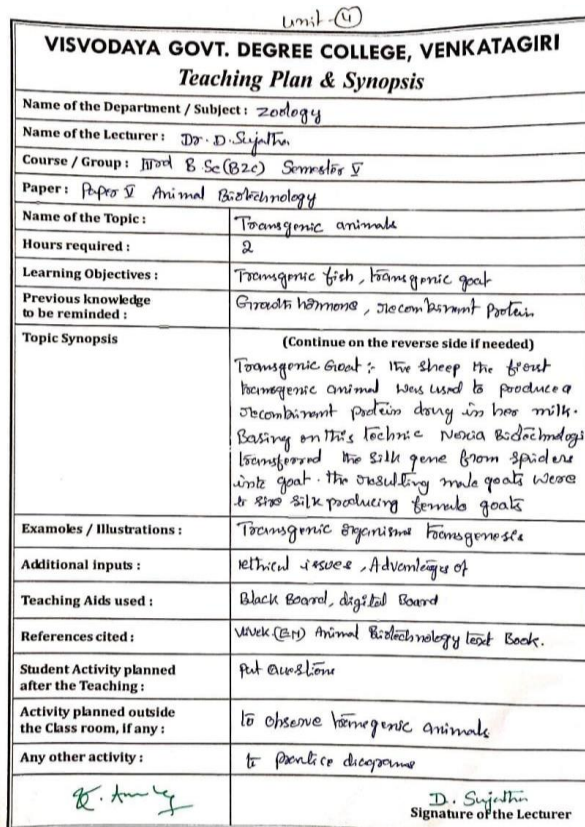 Unit - 4
VISVODAYA GOVT. DEGREE COLLEGE, VENKATAGIRI
Teaching Plan & Synopsis
Name of the Department / Subject : Zoology
Name of the Lecturer : Dr. D. Sujatha
Course / Group : IIIrd B Sc (BZC) Semester V
Paper : Paper V Animal Biotechnology
Name of the Topic : Transgenic animals
Hours required : 2
Learning Objectives : Transgenic fish, transgenic goat
Previous knowledge to be reminded : Growth hormone, recombinant Protein
Topic Synopsis (Continue on the reverse side if needed)
Transgenic Goat :- The sheep the first
transgenic animal was used to produce a
recombinant protein drug in her milk.
Basing on this technic Nexia Biotechnologi
transferred the silk gene from spiders
into goat. the resulting male goats were
to sire silk producing female goats
Examoles / Illustrations : Transgenic organisms transgenesis
Additional inputs : ethical issues, Advantages of
Teaching Aids used : Black Board, digital Board
References cited : Animal Biotechnology text Book.
Student Activity planned after the Teaching : Put Questions
Activity planned outside the Class room, if any : to observe transgenic animals
Any other activity : to practice diagrams
D. Sujatha
Signature of the Lecturer